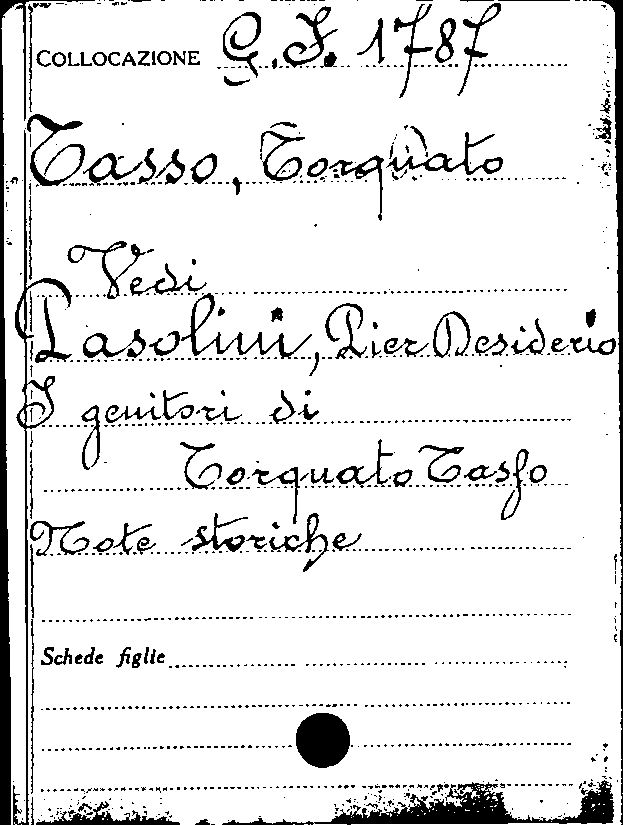 COLLOCAZIONE G.F. 1787
Tasso, Torquato
Vedi
Pasolini, Pier Desiderio
I genitori di
Torquato Tasso
Note storiche
Schede figlie